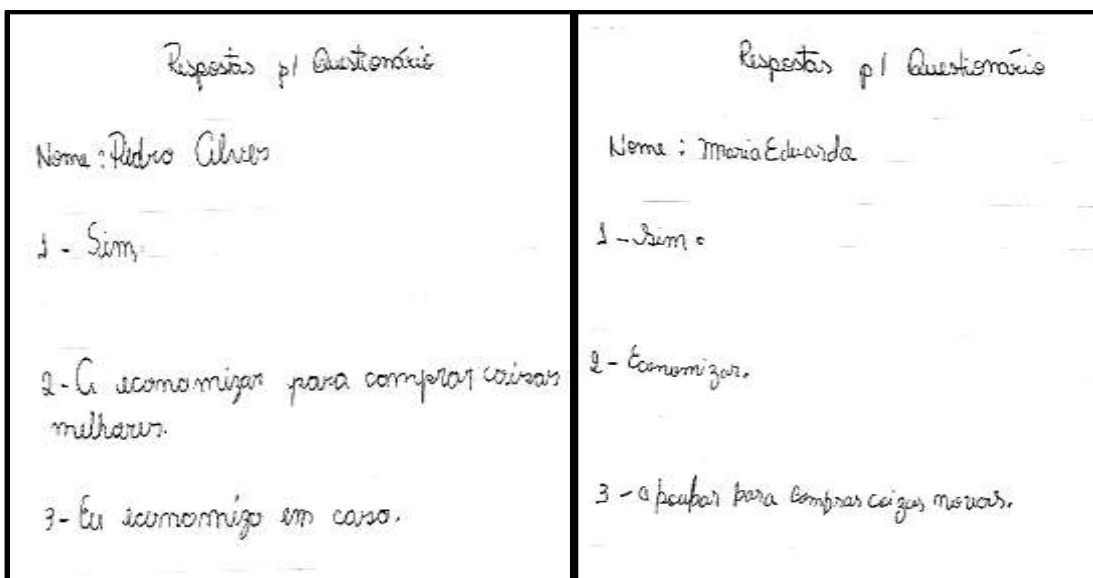 Respostas p/ Questionário
Nome : Pedro Alves
1 - Sim.
2 - A economizar para comprar coisas
melhores.
3 - Eu economizo em casa.
Respostas p/ Questionário
Nome : Maria Eduarda
1 - Sim.
2 - Economizar.
3 - a poupar para compras coizas novas.